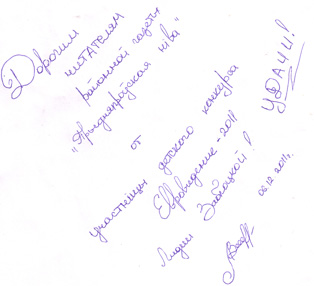 Дорогим
читателям
районной газеты
"Прыдняпроўская ніва"
от
участницы детского конкурса
Евровидение - 2011
Лидии Заблоцкой!
УДАЧИ!
06.12.2011г.